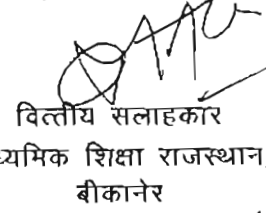 वित्तीय सलाहकार
ध्यमिक शिक्षा राजस्थान
बीकानेर